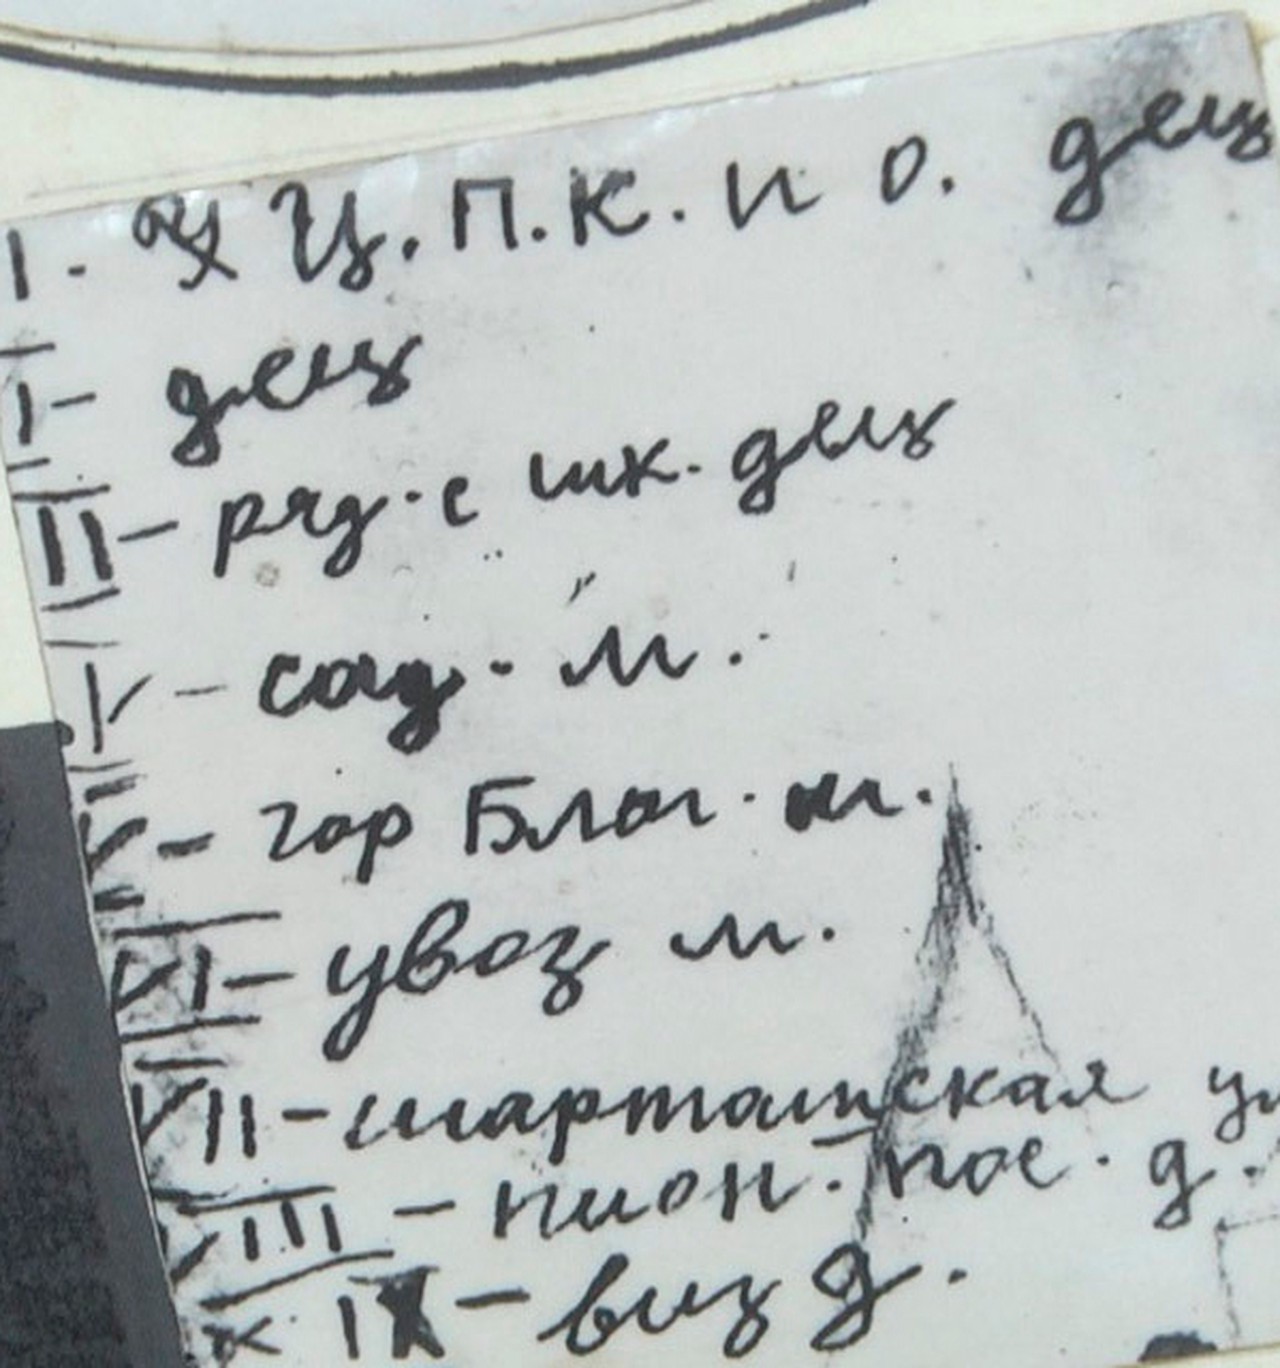 I. Ц. П. К. и О. дец
I - дец
II - ряд. с шк. дец
IV - сад. м.
V - гор Благ. м.
VI - увоз м.
VII - шарташская ул
VIII - пион. пос. д.
IX - виз д.